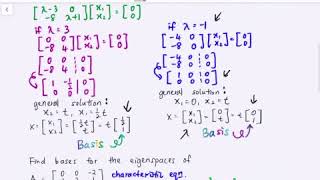 [λ-3 0; -8 λ+1][x₁; x₂] = [0; 0]
if λ = 3
[0 0; -8 4][x₁; x₂] = [0; 0]
[0 0 | 0; -8 4 | 0]
[1 -½ | 0; 0 0 | 0]
general solution:
x₂ = t, x₁ = ½t
x = [x₁; x₂] = [½t; t] = t[½; 1]
Basis
if λ = -1
[-4 0; -8 0][x₁; x₂] = [0; 0]
[-4 0 | 0; -8 0 | 0]
[1 0 | 0; 0 0 | 0]
general solution:
x₁ = 0, x₂ = t
x = [x₁; x₂] = [0; t] = t[0; 1]
Basis
Find bases for the eigenspaces of
0 0 -2 characteristic eqn.